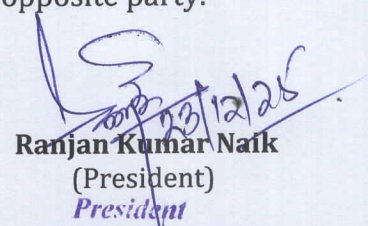 opposite party.
23/12/25
Ranjan Kumar Naik
(President)
President